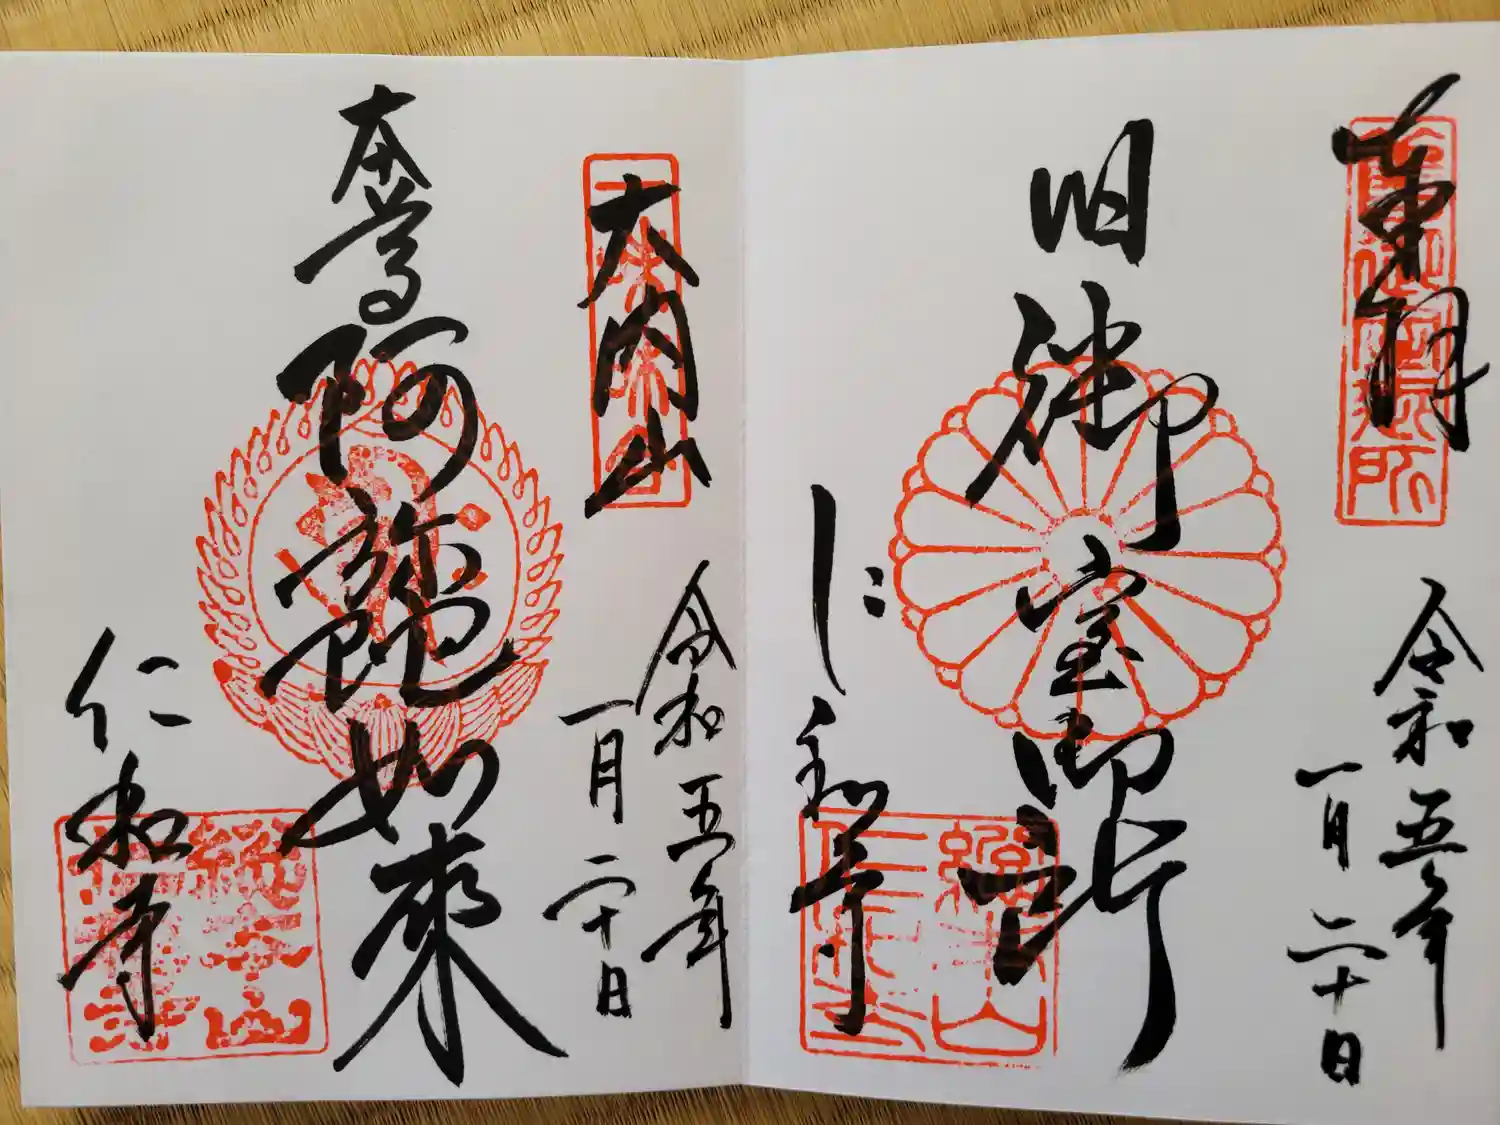 奉拝
令和五年
一月二十日
旧御室御所
仁和寺
大内山
令和五年
一月二十日
本尊阿弥陀如來
仁和寺